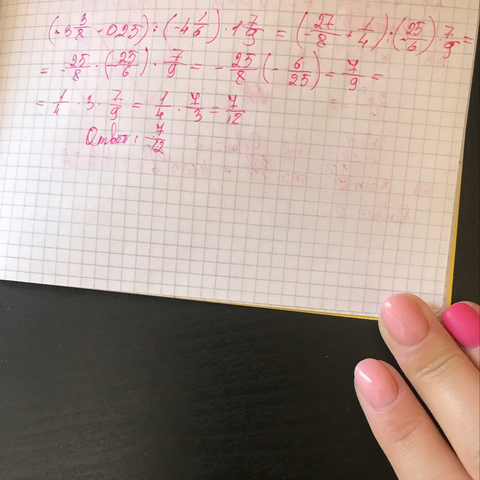 (-3 3/8 + 0,25) : (-4 1/6) · 1 7/9 = (-27/8 + 1/4) : (-25/6) 7/9 =
= -25/8 · (25/6) · 7/9 = -25/8 (-6/25) = 7/9 =
= 1/4 · 3 · 7/9 = 1/4 · 7/3 = 7/12
Ответ: 7/12